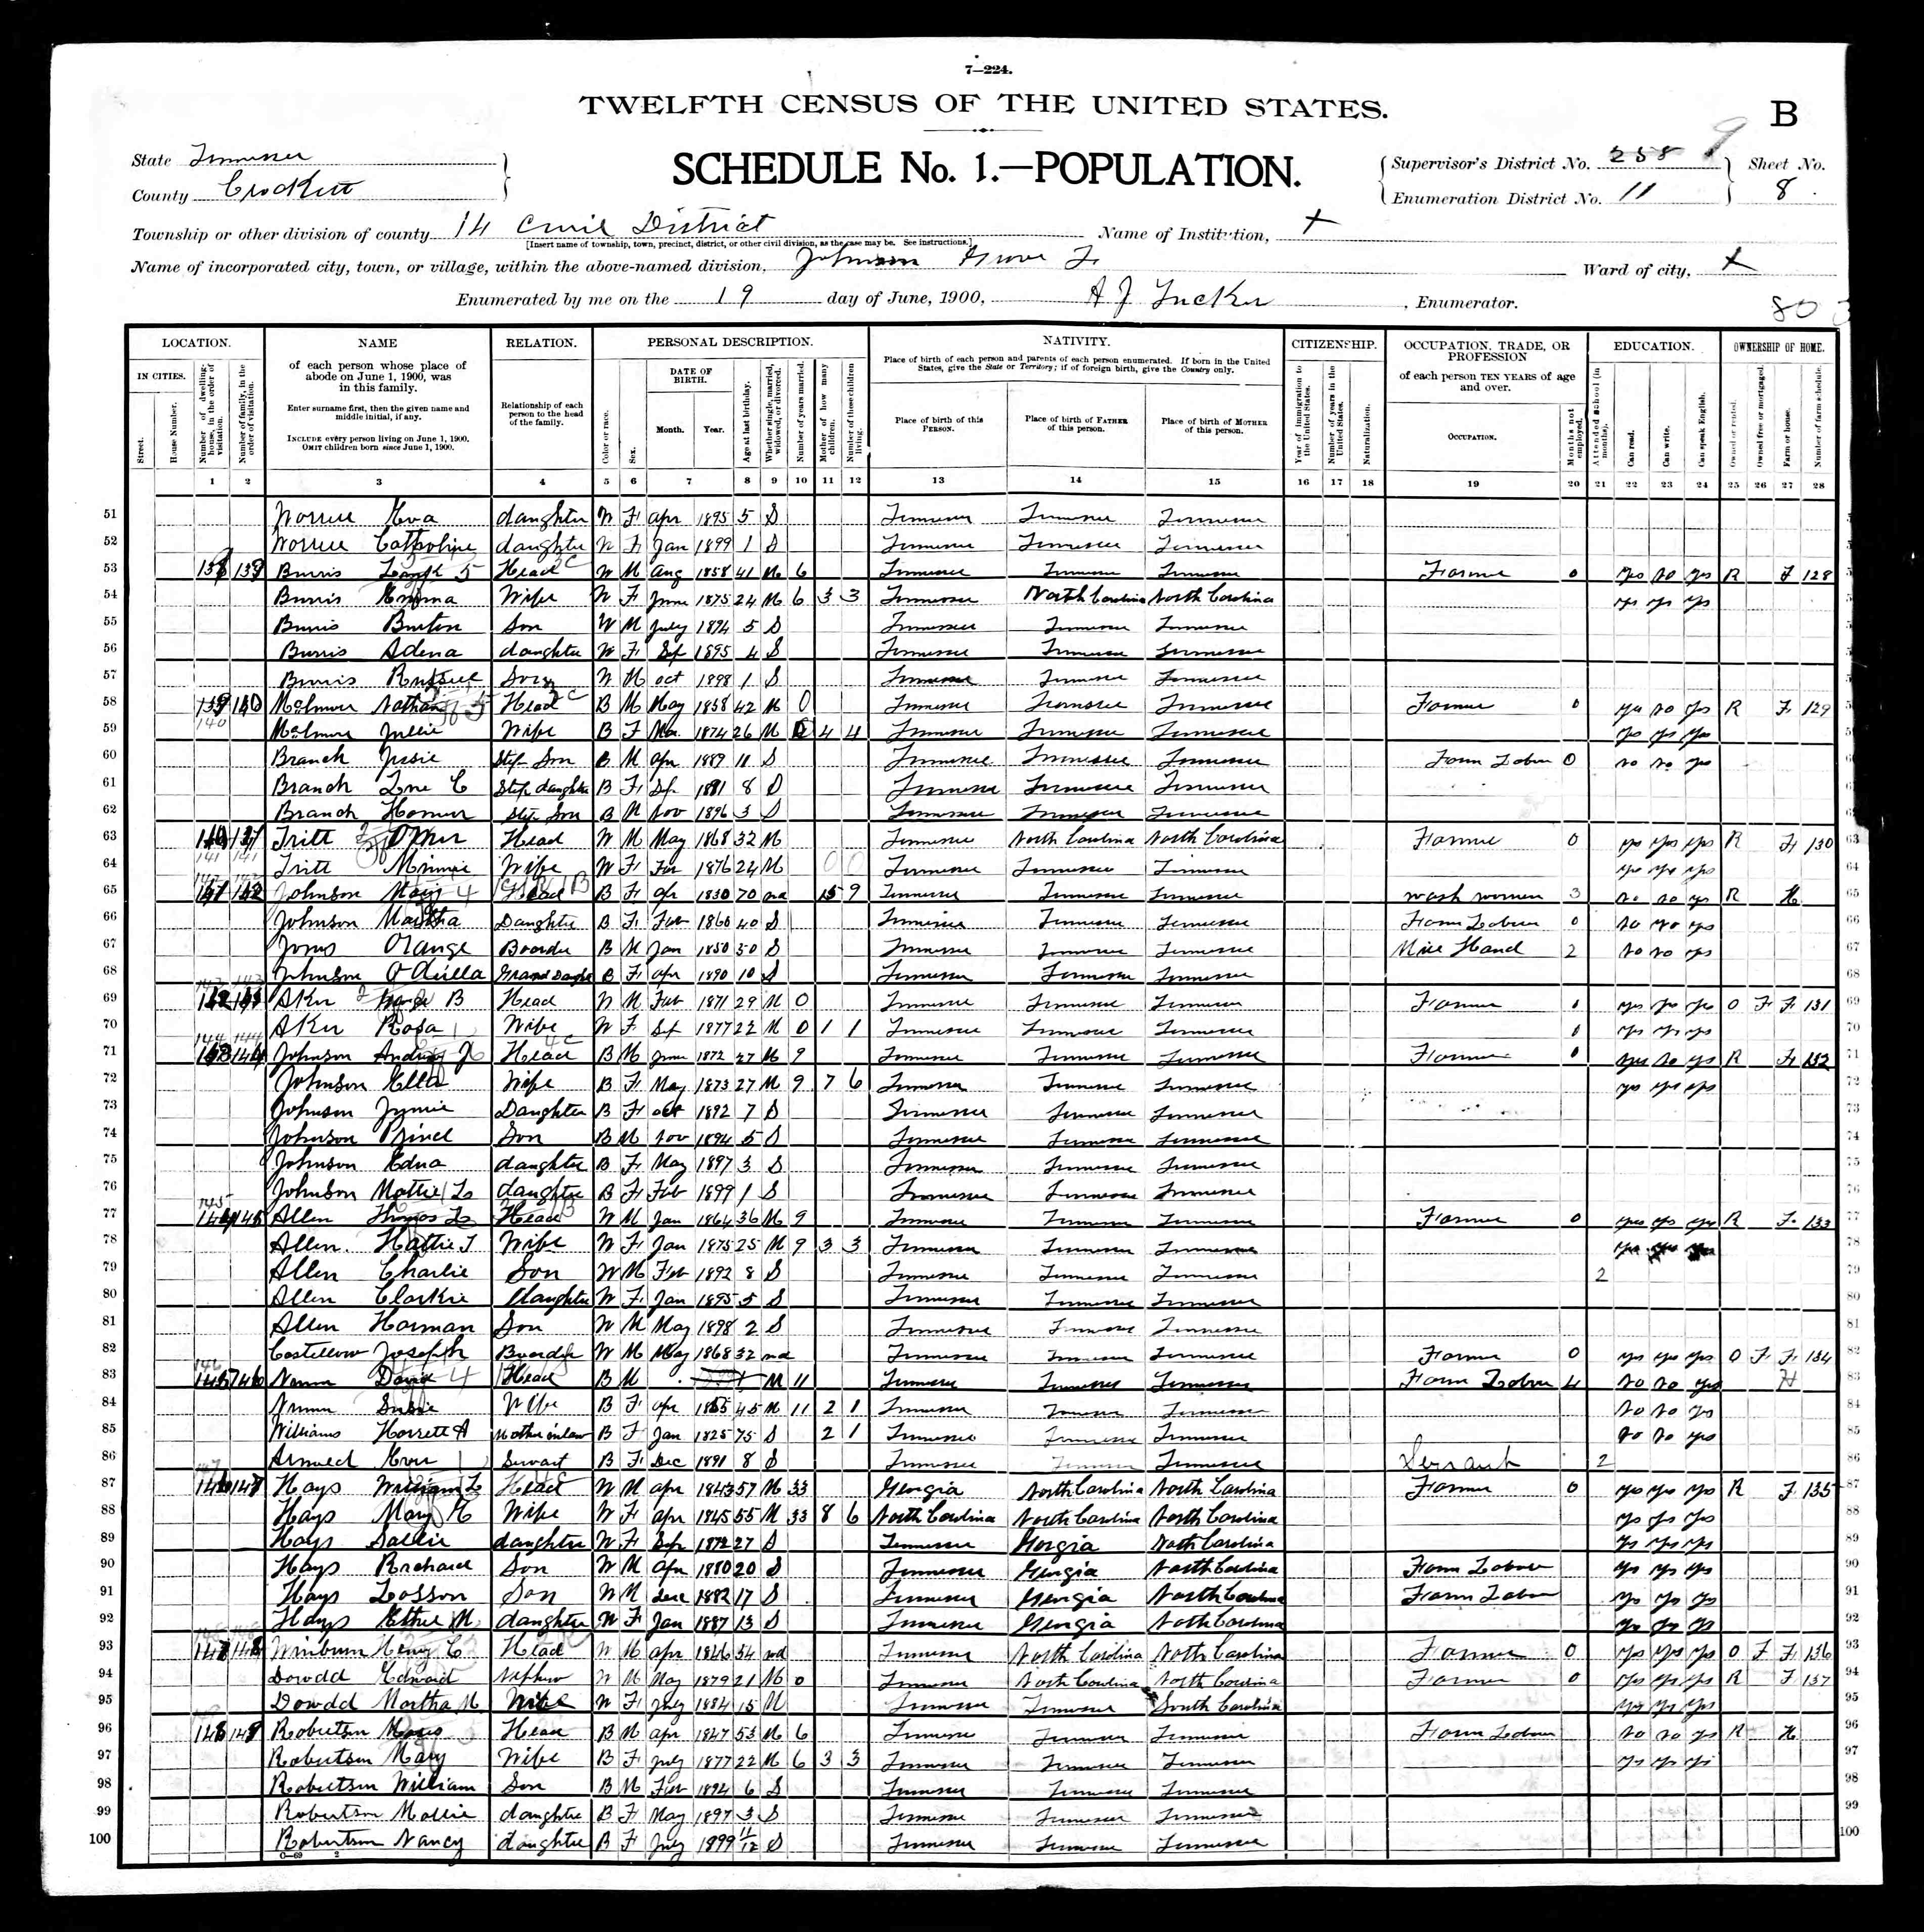 7—224.
TWELFTH CENSUS OF THE UNITED STATES.
B
State Tennessee
County Crockett
SCHEDULE No. 1.—POPULATION.
Supervisor's District No. 258 9
Enumeration District No. 11
Sheet No. 8
Township or other division of county 14 Civil District
[Insert name of township, town, precinct, district, or other civil division, as the case may be. See instructions.]
Name of Institution, X
Name of incorporated city, town, or village, within the above-named division, Johnson Grove
Ward of city, X
Enumerated by me on the 19 day of June, 1900, A J Tucker, Enumerator.
LOCATION. NAME RELATION. PERSONAL DESCRIPTION. NATIVITY. CITIZENSHIP. OCCUPATION, TRADE, OR PROFESSION EDUCATION. OWNERSHIP OF HOME.
IN CITIES.
Street.
House Number.
Number of dwelling-house, in the order of visitation.
Number of family, in the order of visitation.
of each person whose place of abode on June 1, 1900, was in this family.
Enter surname first, then the given name and middle initial, if any.
INCLUDE every person living on June 1, 1900. OMIT children born since June 1, 1900.
Relationship of each person to the head of the family.
Color or race.
Sex.
DATE OF BIRTH.
Month. Year.
Age at last birthday.
Whether single, married, widowed, or divorced.
Number of years married.
Mother of how many children.
Number of these children living.
Place of birth of each person and parents of each person enumerated. If born in the United States, give the State or Territory; if of foreign birth, give the Country only.
Place of birth of this PERSON.
Place of birth of FATHER of this person.
Place of birth of MOTHER of this person.
Year of immigration to the United States.
Number of years in the United States.
Naturalization.
of each person TEN YEARS of age and over.
OCCUPATION.
Months not employed.
Attended school (in months).
Can read.
Can write.
Can speak English.
Owned or rented.
Owned free or mortgaged.
Farm or house.
Number of farm schedule.
1 2 3 4 5 6 7 8 9 10 11 12 13 14 15 16 17 18 19 20 21 22 23 24 25 26 27 28
51 Eva daughter W F Apr 1895 5 S Tennessee Tennessee Tennessee
52 daughter W F Jan 1899 1 S Tennessee Tennessee Tennessee
53 Burris Head W M Aug 1858 41 M 6 Tennessee Tennessee Tennessee Farmer 0 yes no yes R F 128
54 Burris Emma Wife W F June 1875 24 M 6 3 3 Tennessee North Carolina North Carolina yes yes yes
55 Burris Burton Son W M July 1894 5 S Tennessee Tennessee Tennessee
56 Burris Adena daughter W F Sep 1895 4 S Tennessee Tennessee Tennessee
57 Burris Russell Son W M Oct 1898 1 S Tennessee Tennessee Tennessee
58 Nathan Head B M May 1858 42 M 0 Tennessee Tennessee Tennessee Farmer 0 yes no yes R F 129
59 Julie Wife B F Mar 1874 26 M 0 4 4 Tennessee Tennessee Tennessee yes yes yes
60 Branch Jessie Step Son B M Apr 1889 11 S Tennessee Tennessee Tennessee Farm Labor 0 no no yes
61 Branch Step daughter B F Sep 1891 8 S Tennessee Tennessee Tennessee
62 Branch Homer Step Son B M Nov 1896 3 S Tennessee Tennessee Tennessee
63 Tritt Head W M May 1868 32 M Tennessee North Carolina North Carolina Farmer 0 yes yes yes R F 130
64 Tritt Minnie Wife W F 1876 24 M Tennessee Tennessee Tennessee yes yes yes
65 Johnson Mary Head B F Apr 1830 70 wd 15 9 Tennessee Tennessee Tennessee wash women 3 no no yes R H
66 Johnson Martha Daughter B F Feb 1860 40 S Tennessee Tennessee Tennessee Farm Labor 0 no no yes
67 Jones Orange Boarder B M Jan 1850 50 S Tennessee Tennessee Tennessee Mill Hand 2 no no yes
68 Johnson Odella Grand Daughter B F Apr 1890 10 S Tennessee Tennessee Tennessee
69 Aker B Head W M Feb 1871 29 M 0 Tennessee Tennessee Tennessee Farmer yes yes yes O F F 131
70 Aker Rosa Wife W F Sep 1877 22 M 0 1 1 Tennessee Tennessee Tennessee yes yes yes
71 Johnson Andrew J Head B M June 1872 27 M 9 Tennessee Tennessee Tennessee Farmer 0 yes no yes R F 132
72 Johnson Ella Wife B F May 1873 27 M 9 7 6 Tennessee Tennessee Tennessee yes yes yes
73 Johnson Daughter B F Oct 1892 7 S Tennessee Tennessee Tennessee
74 Johnson Son B M Nov 1894 5 S Tennessee Tennessee Tennessee
75 Johnson Edna daughter B F May 1897 3 S Tennessee Tennessee Tennessee
76 Johnson Mattie L daughter B F Feb 1899 1 S Tennessee Tennessee Tennessee
77 Allen Head W M Jan 1864 36 M 9 Tennessee Tennessee Tennessee Farmer 0 yes yes yes R F 133
78 Allen Hattie T Wife W F Jan 1875 25 M 9 3 3 Tennessee Tennessee Tennessee yes yes yes
79 Allen Charlie Son W M Feb 1892 8 S Tennessee Tennessee Tennessee 2
80 Allen Clarkie Daughter W F Jan 1895 5 S Tennessee Tennessee Tennessee
81 Allen Harman Son W M May 1898 2 S Tennessee Tennessee Tennessee
82 Costellow Joseph Boarder W M May 1868 32 wd Tennessee Tennessee Tennessee Farmer 0 yes yes yes O F F 134
83 David Head B M M 11 Tennessee Tennessee Tennessee Farm Labor 4 no no yes H
84 Susie Wife B F Apr 1855 45 M 11 2 1 Tennessee Tennessee Tennessee no no yes
85 Williams Harrett A Mother in law B F Jan 1825 75 S 2 1 Tennessee Tennessee Tennessee no no yes
86 Servant B F Dec 1891 8 S Tennessee Tennessee Tennessee Servant 2
87 Hays William L Head W M Apr 1843 57 M 33 Georgia North Carolina North Carolina Farmer 0 yes yes yes R F 135
88 Hays Mary E Wife W F Apr 1845 55 M 33 8 6 North Carolina North Carolina North Carolina yes yes yes
89 Hays Sallie daughter W F Sep 1872 27 S Tennessee Georgia North Carolina yes yes yes
90 Hays Richard Son W M Apr 1880 20 S Tennessee Georgia North Carolina Farm Labor yes yes yes
91 Hays Losson Son W M Dec 1882 17 S Tennessee Georgia North Carolina Farm Labor yes yes yes
92 Hays Ethel M daughter W F Jan 1887 13 S Tennessee Georgia North Carolina yes yes yes
93 Winburn Henry C Head W M Apr 1846 54 wd Tennessee North Carolina North Carolina Farmer 0 yes yes yes O F F 136
94 Dowdd Edward Nephew W M May 1879 21 M 0 Tennessee North Carolina North Carolina Farmer 0 yes yes yes R F 137
95 Dowdd Martha M Wife W F July 1884 15 M Tennessee Tennessee South Carolina yes yes yes
96 Robertson Head B M Apr 1847 53 M 6 Tennessee Tennessee Tennessee Farm Labor no no yes R H
97 Robertson Mary Wife B F July 1877 22 M 6 3 3 Tennessee Tennessee Tennessee yes yes yes
98 Robertson William Son B M Feb 1894 6 S Tennessee Tennessee Tennessee
99 Robertson Mollie daughter B F May 1897 3 S Tennessee Tennessee Tennessee
100 Robertson Nancy daughter B F July 1899 11/12 S Tennessee Tennessee Tennessee